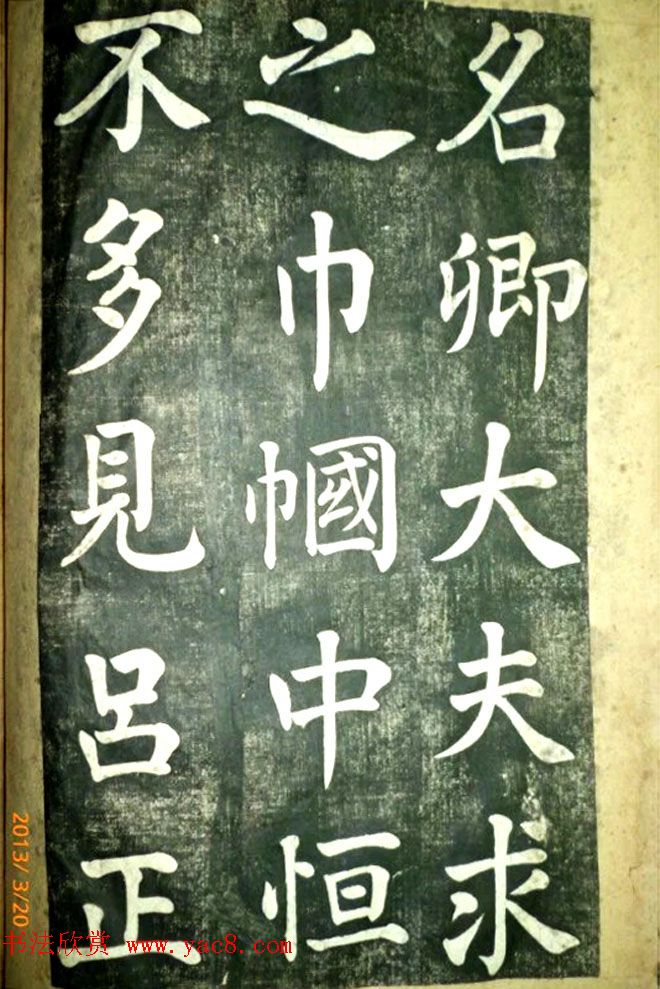 名卿大夫求
之巾幗中恒
不多見呂正
2013/ 3/20
书法欣赏 www.yac8.com